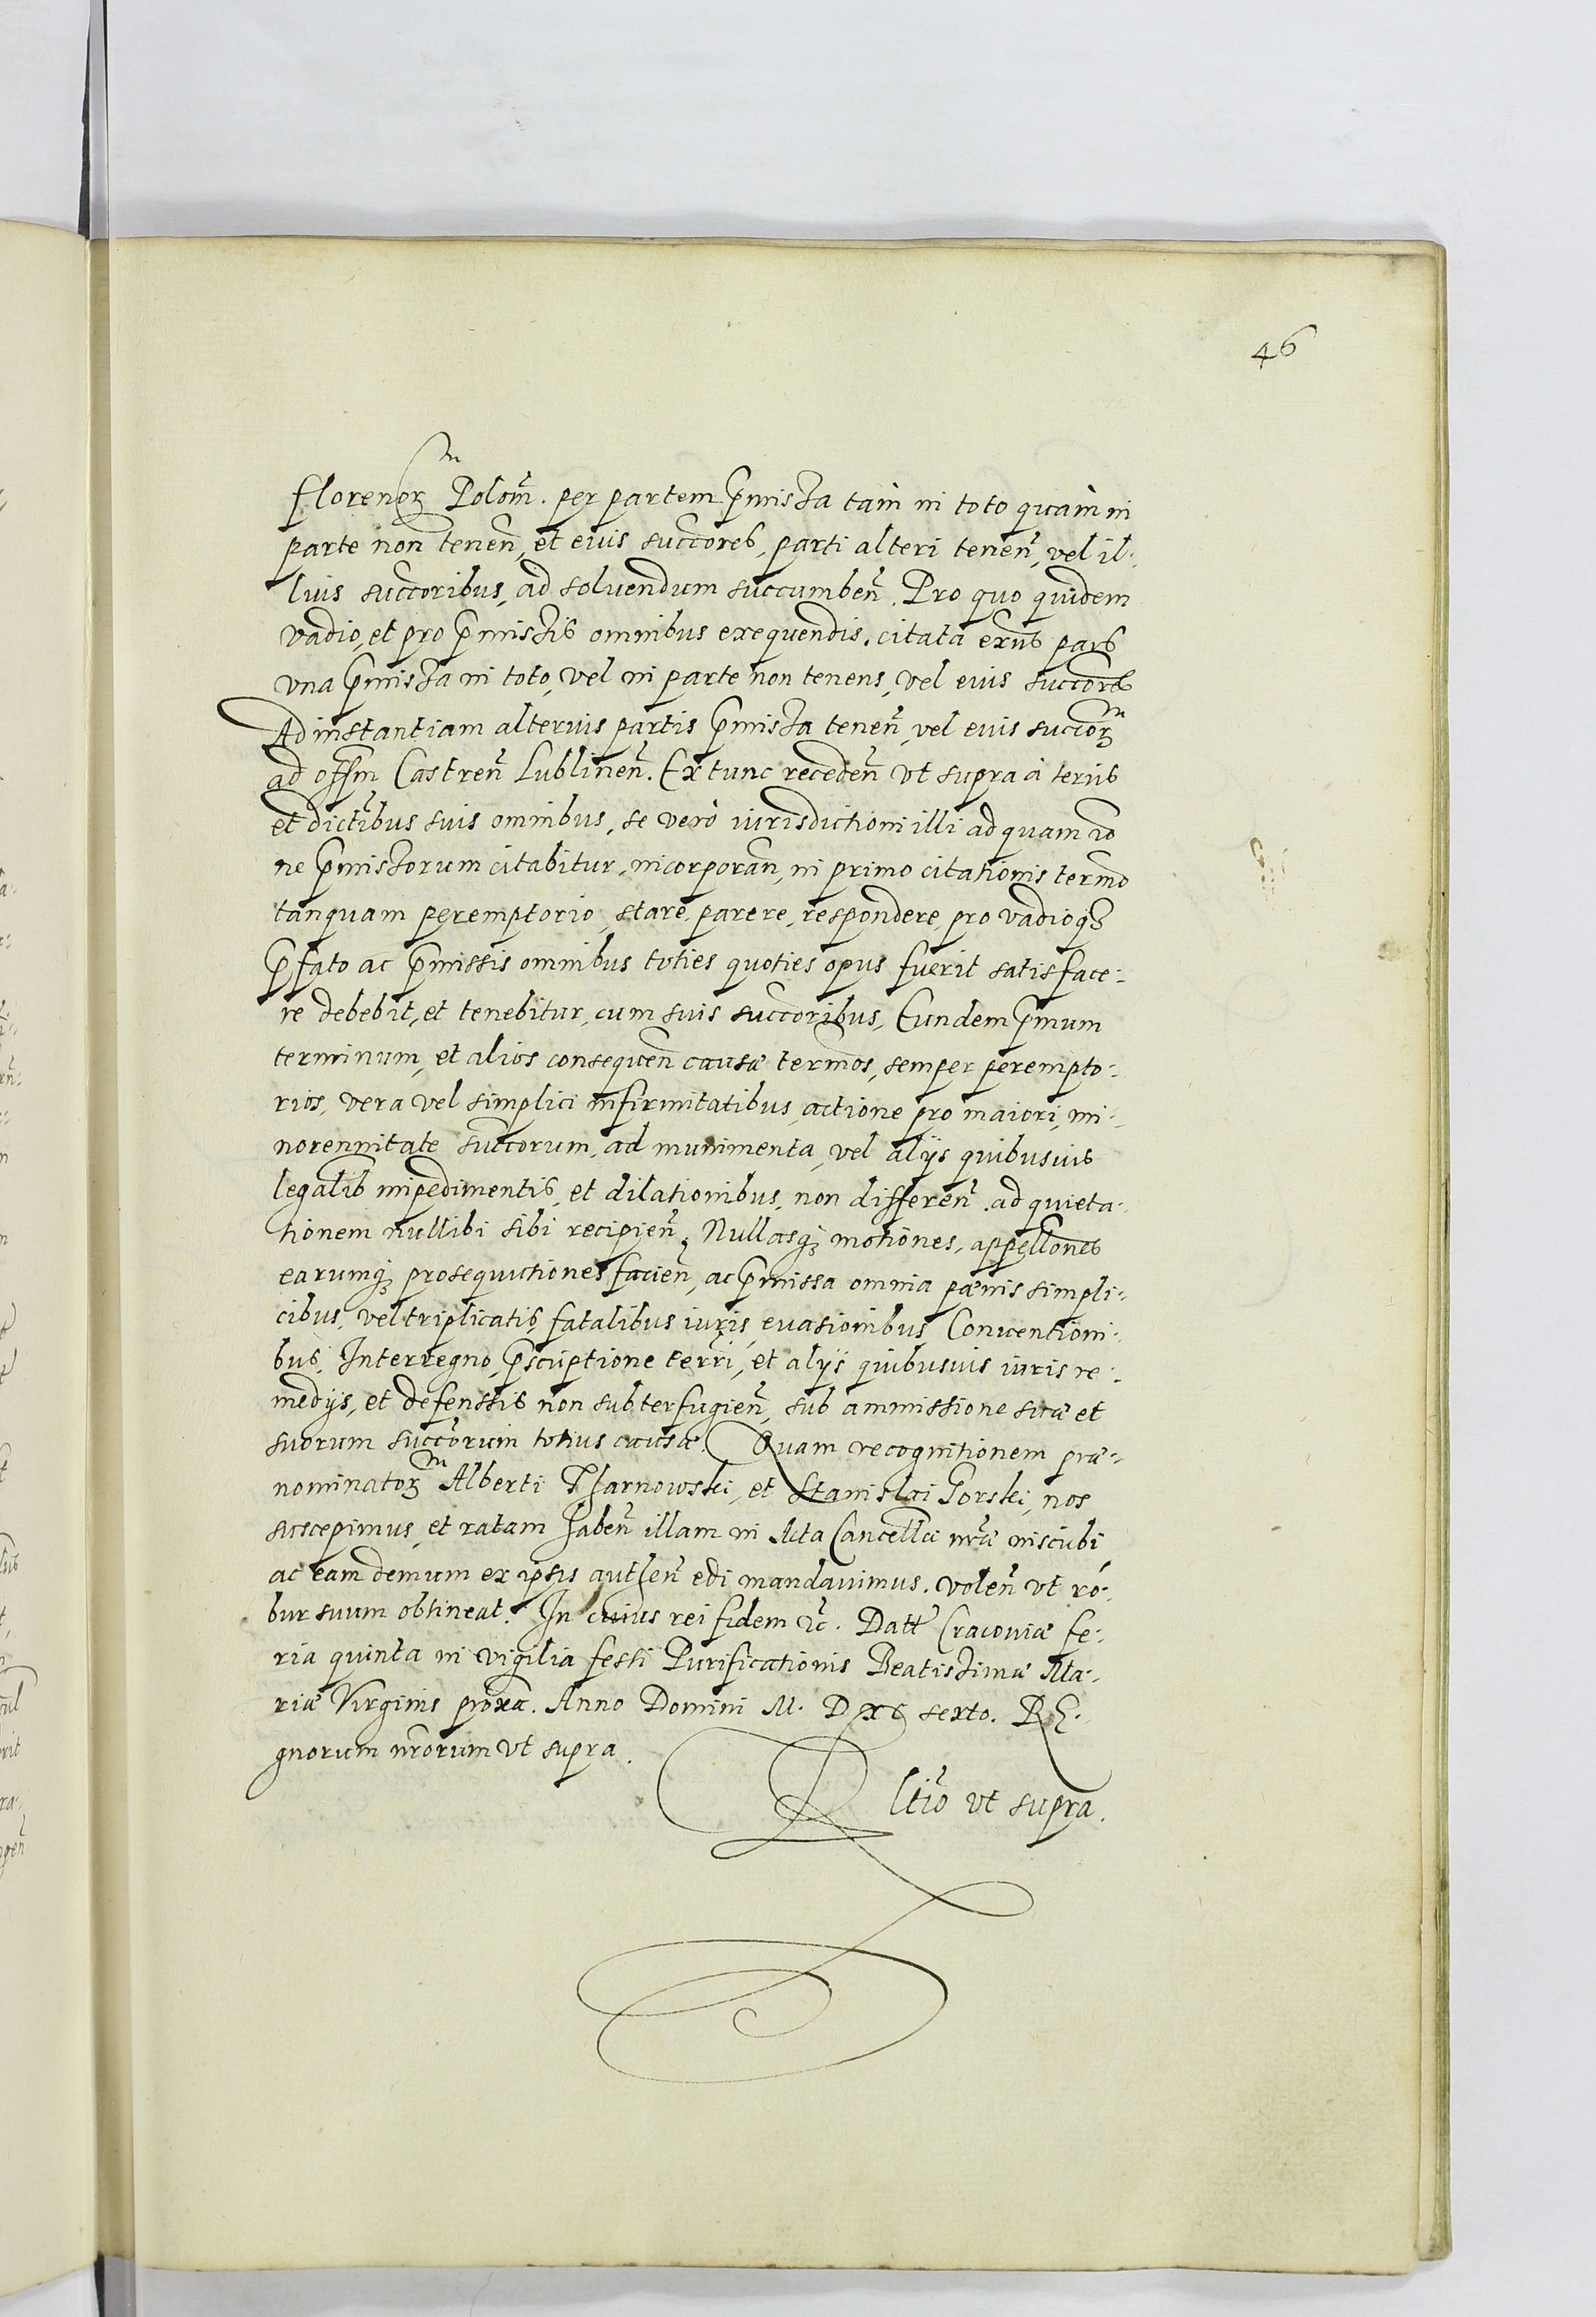 46
florenor̄ Polon̄. per partem p̄missa tam in toto quàm in
parte non tenen̄, et eius succores, parti alteri tenen̄, vel il-
lius succoribus, ad soluendum succumben̄. Pro quo quidem
vadio, et pro p̄missis omnibus exequendis, citata exns pars
vna p̄missa in toto, vel in parte non tenens, vel eius succores
Ad instantiam alterius partis p̄missa tenen̄, vel eius succor̄
ad offm Castren̄ Lublinen̄. Ex tunc receden̄ vt supra à terris
et dictibus suis omnibus, se verò iurisdictioni illi ad quam ro
ne p̄missorum citabitur, incorporan̄, in primo citationis termo
tanquam peremptorio, stare, parere, respondere, pro vadioq;
p̄fato ac p̄missis omnibus toties quoties opus fuerit satisface-
re debebit, et tenebitur, cum suis succoribus, Eundem p̄mum
terminum, et alios consequen̄ causæ termos, semper perempto-
rios, vera vel simplici infirmitatibus, actione pro maiori, mi-
norennitate succorum, ad munimenta, vel alijs quibusuis
legalib impedimentis, et dilationibus, non differen̄. ad quieta-
tionem nullibi sibi recipien̄, Nullasq; motiones, appellones
earumq; prosequutiones facien̄, ac p̄missa omnia pænis simpli-
cibus, vel triplicatis, fatalibus iuris, euasionibus, Conuentioni-
bus, Interregno, p̄scriptione terri, et alijs quibusuis iuris re-
medijs, et defenssis non subterfugien̄, sub ammissione suæ et
suorum succorum totius causæ. Quam recognitionem præ-
nominator̄ Alberti Tharnowski, et Stanislai Gorski, nos
suscepimus, et ratam haben̄ illam in Acta Cancellæ nræ inscribi
ac eam demum ex ipsis authen̄ edi mandauimus. volen̄ vt ro-
bur suum obtineat. In cuius rei fidem &c. Datt Cracouiæ fe-
ria quinta in vigilia festi Purificationis Beatissimæ Ma-
riæ Virginis proxa. Anno Domini M. D XC sexto. RE-
gnorum nrorum vt supra.
Rltio vt supra.